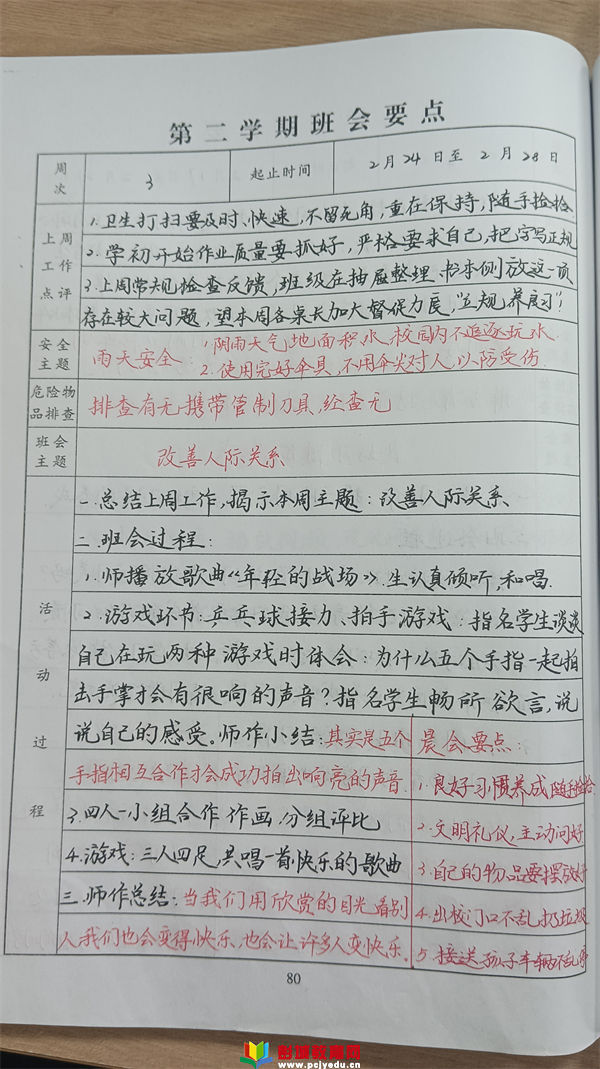 第二学期班会要点
周次 3 起止时间 2月24日至2月28日
上周工作点评
1.卫生打扫要及时、快速,不留死角,重在保持,随手捡捡
2.学初开始作业质量要抓好,严格要求自己,把字写正规
3.上周常规检查反馈,班级在抽屉整理、书本侧放这一项
存在较大问题,望本周各桌长加大督促力度,“立规养良习”!
安全主题
雨天安全:1.阴雨天气地面积水,校园内不追逐玩水.
2.使用完好伞具,不用伞尖对人,以防受伤.
危险物品排查
排查有无携带管制刀具,经查无
班会主题
改善人际关系
活动过程
一.总结上周工作,揭示本周主题:改善人际关系
二.班会过程:
1.师播放歌曲《年轻的战场》.生认真倾听,和唱.
2.游戏环节:乒乓球接力、拍手游戏:指名学生谈谈
自己在玩两种游戏时体会:为什么五个手指一起拍
击手掌才会有很响的声音?指名学生畅所欲言,说
说自己的感受。师作小结:其实是五个
手指相互合作才会成功拍出响亮的声音.
3.四人一小组合作作画,分组评比
4.游戏:三人四足,共唱一首快乐的歌曲
三.师作总结:当我们用欣赏的目光看别
人我们也会变得快乐,也会让许多人变快乐.
晨会要点:
1.良好习惯养成随手捡捡
2.文明礼仪,主动问好
3.自己的物品要摆放好
4.出校门口不乱扔垃圾
5.接送孩子车辆不乱停
80
彭城教育网
www.pcjyedu.cn